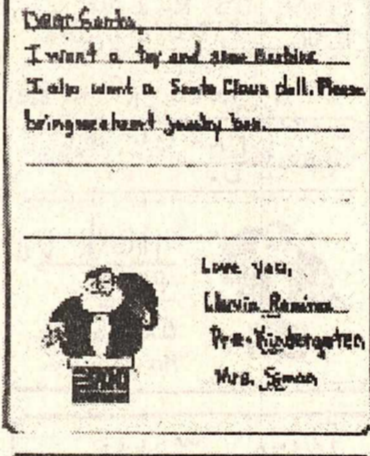 Dear Santa,
I want a toy and some Barbies.
I also want a Santa Claus doll. Please
bring me a heart jewelry box.
Love you,
Ramirez
Pre-Kindergarten
Mrs.